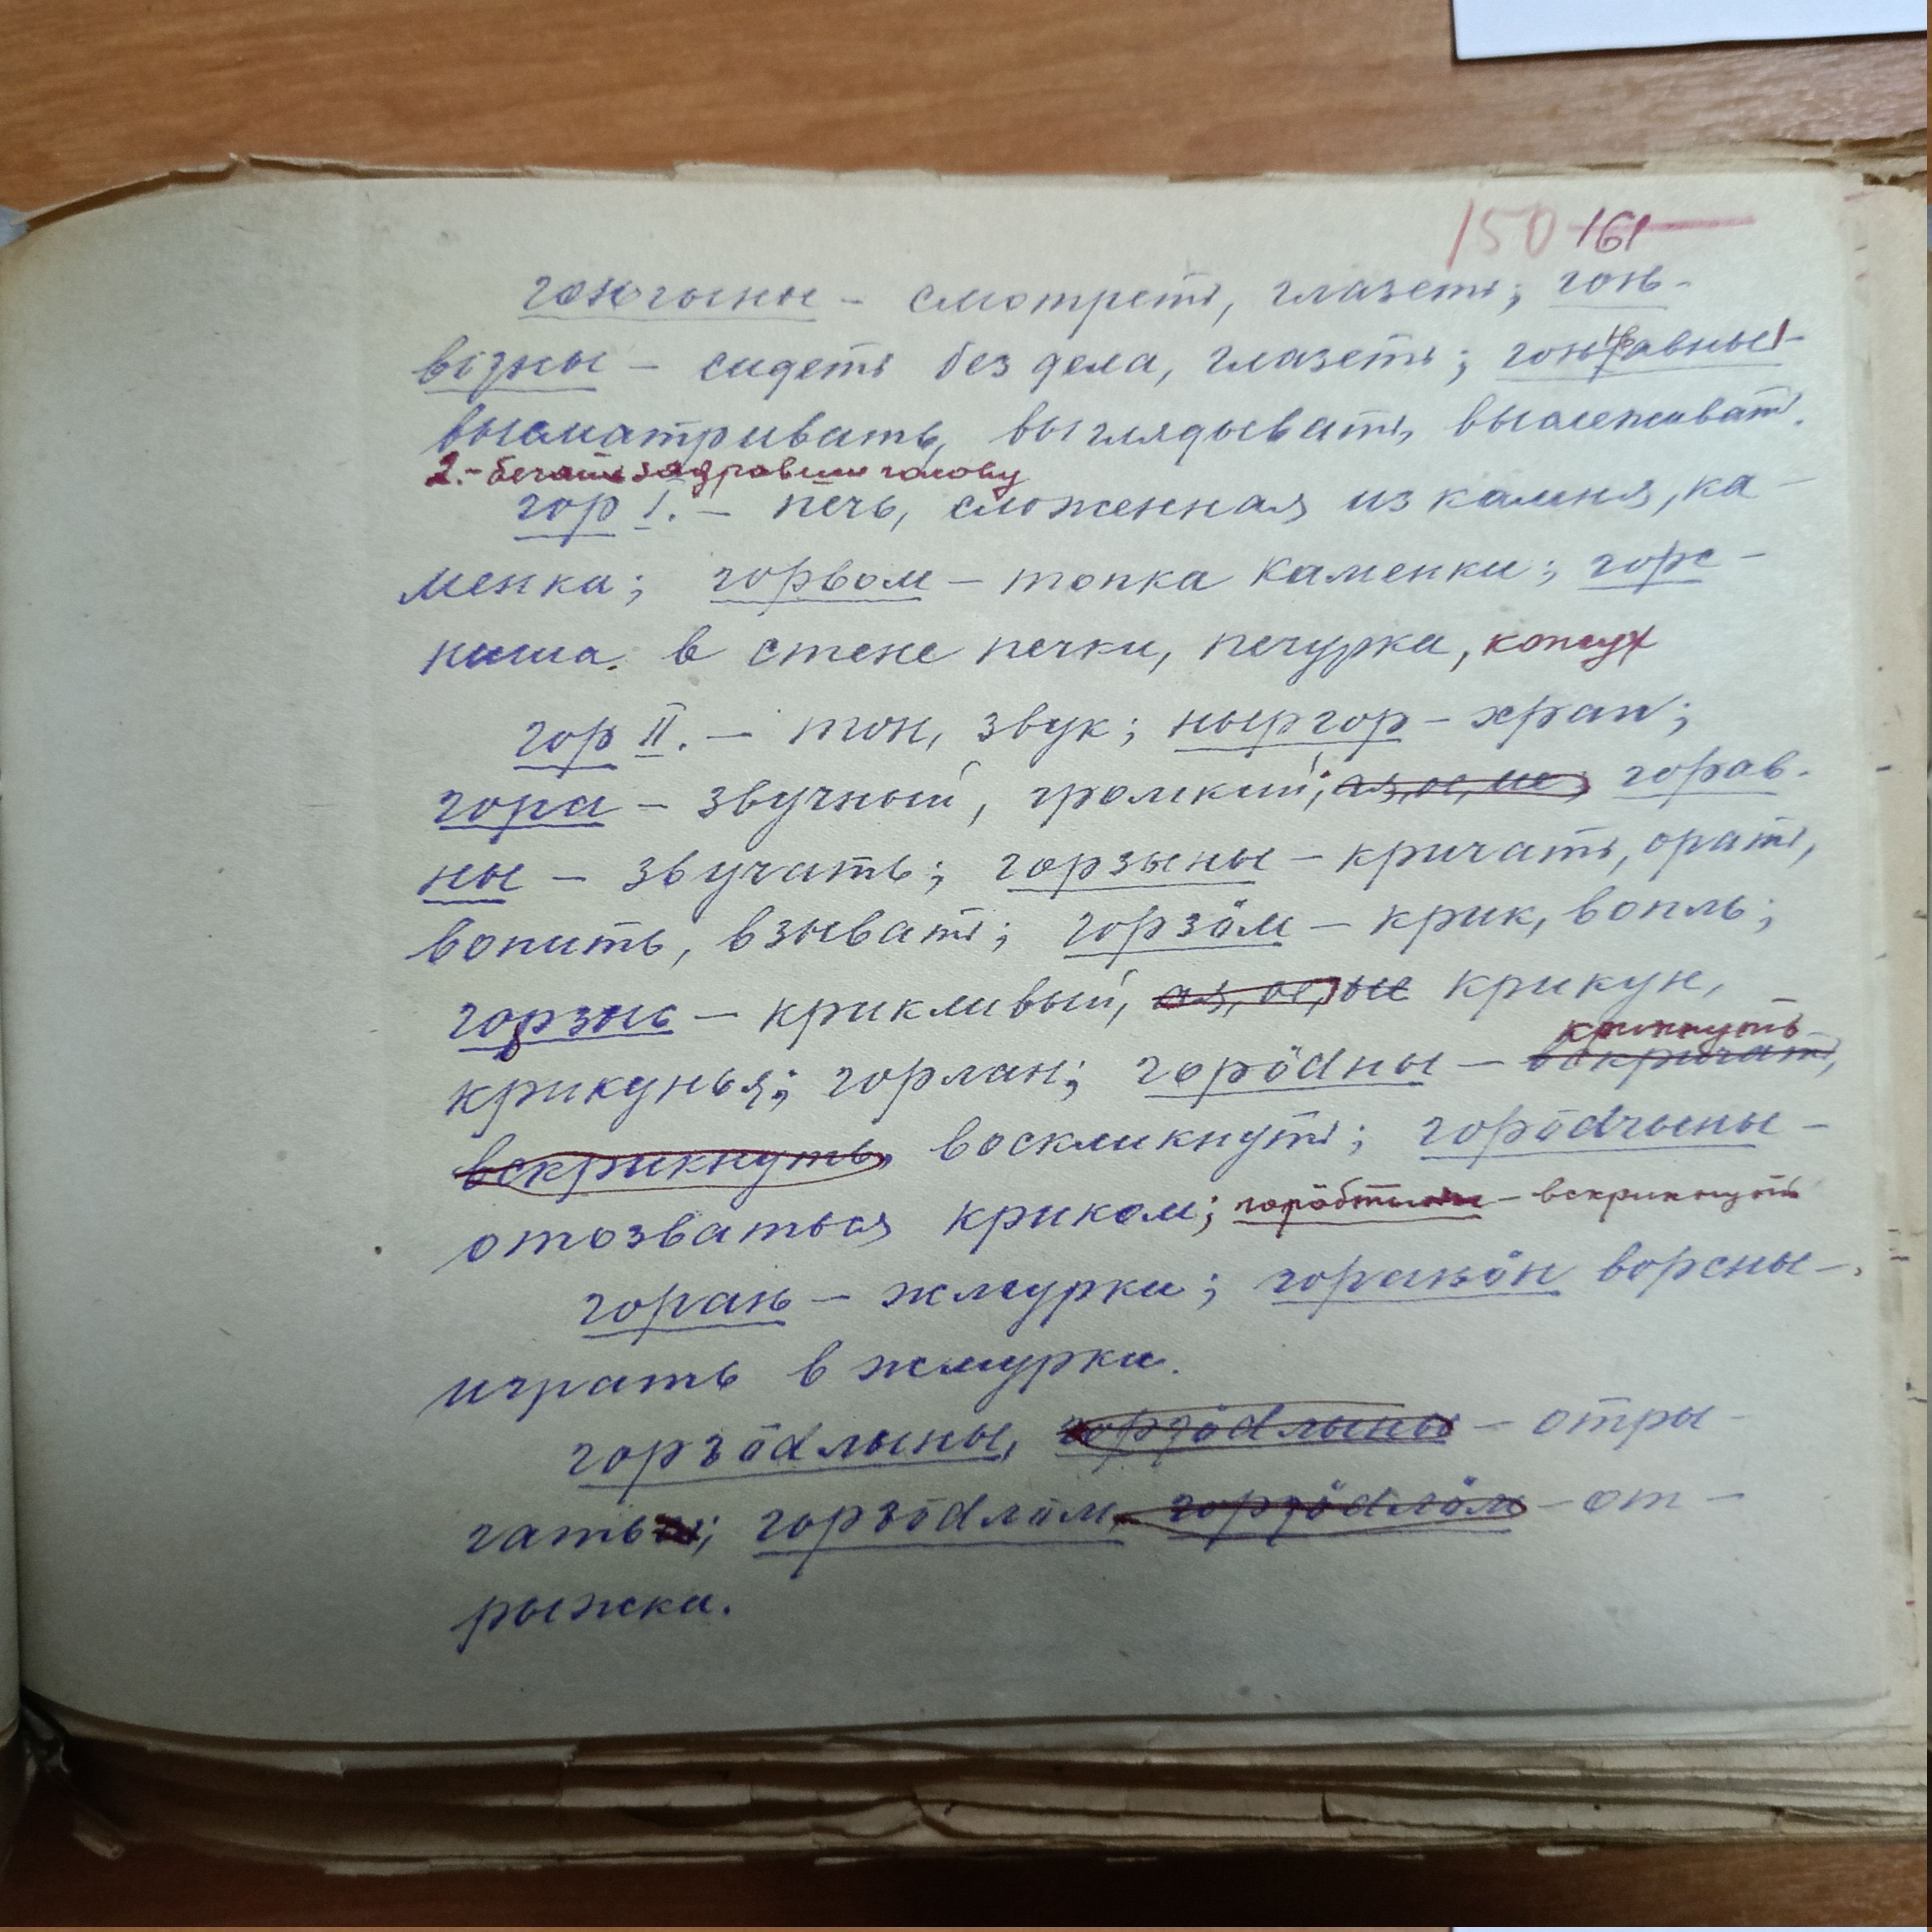 150 161
гонгыны – смотреть, глазеть; гонь-
візны – сидеть без дела, глазеть; гоньявны 1 –
высматривать, выглядывать, выслеживать.
2. – бегать задравши голову
гор I. – печь, сложенная из камня, ка-
менка; горвом – топка каменки; горс –
ниша в стене печки, печурка, кожух
гор II. – тон, звук; ныргор – храп;
гора – звучный, громкий; ая, ое, ые; горав-
ны – звучать; горзыны – кричать, орать,
вопить, взывать; горзӧм – крик, вопль;
горзысь – крикливый, ая, ое, ые крикун,
крикнуть
крикунья; горлан; горӧdны – вскричать,
вскрикнуть, воскликнуть; горӧdчыны –
отозваться криком; – вскрикнуть
горань – жмурки; гораньӧн ворсны –
играть в жмурки.
горзӧdлыны, горӡӧdлыны – отры-
гать; горзӧdлӧм, горӡӧdлӧм – от-
рыжка.